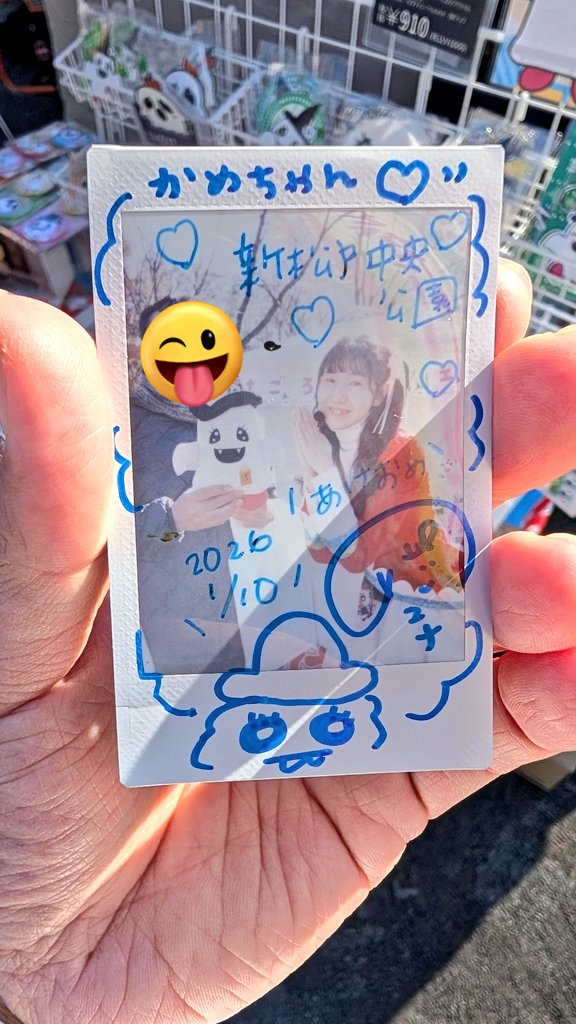 ¥910
かめちゃん♡〃
新松戸中央
公園
あけおめ
2026
1/10